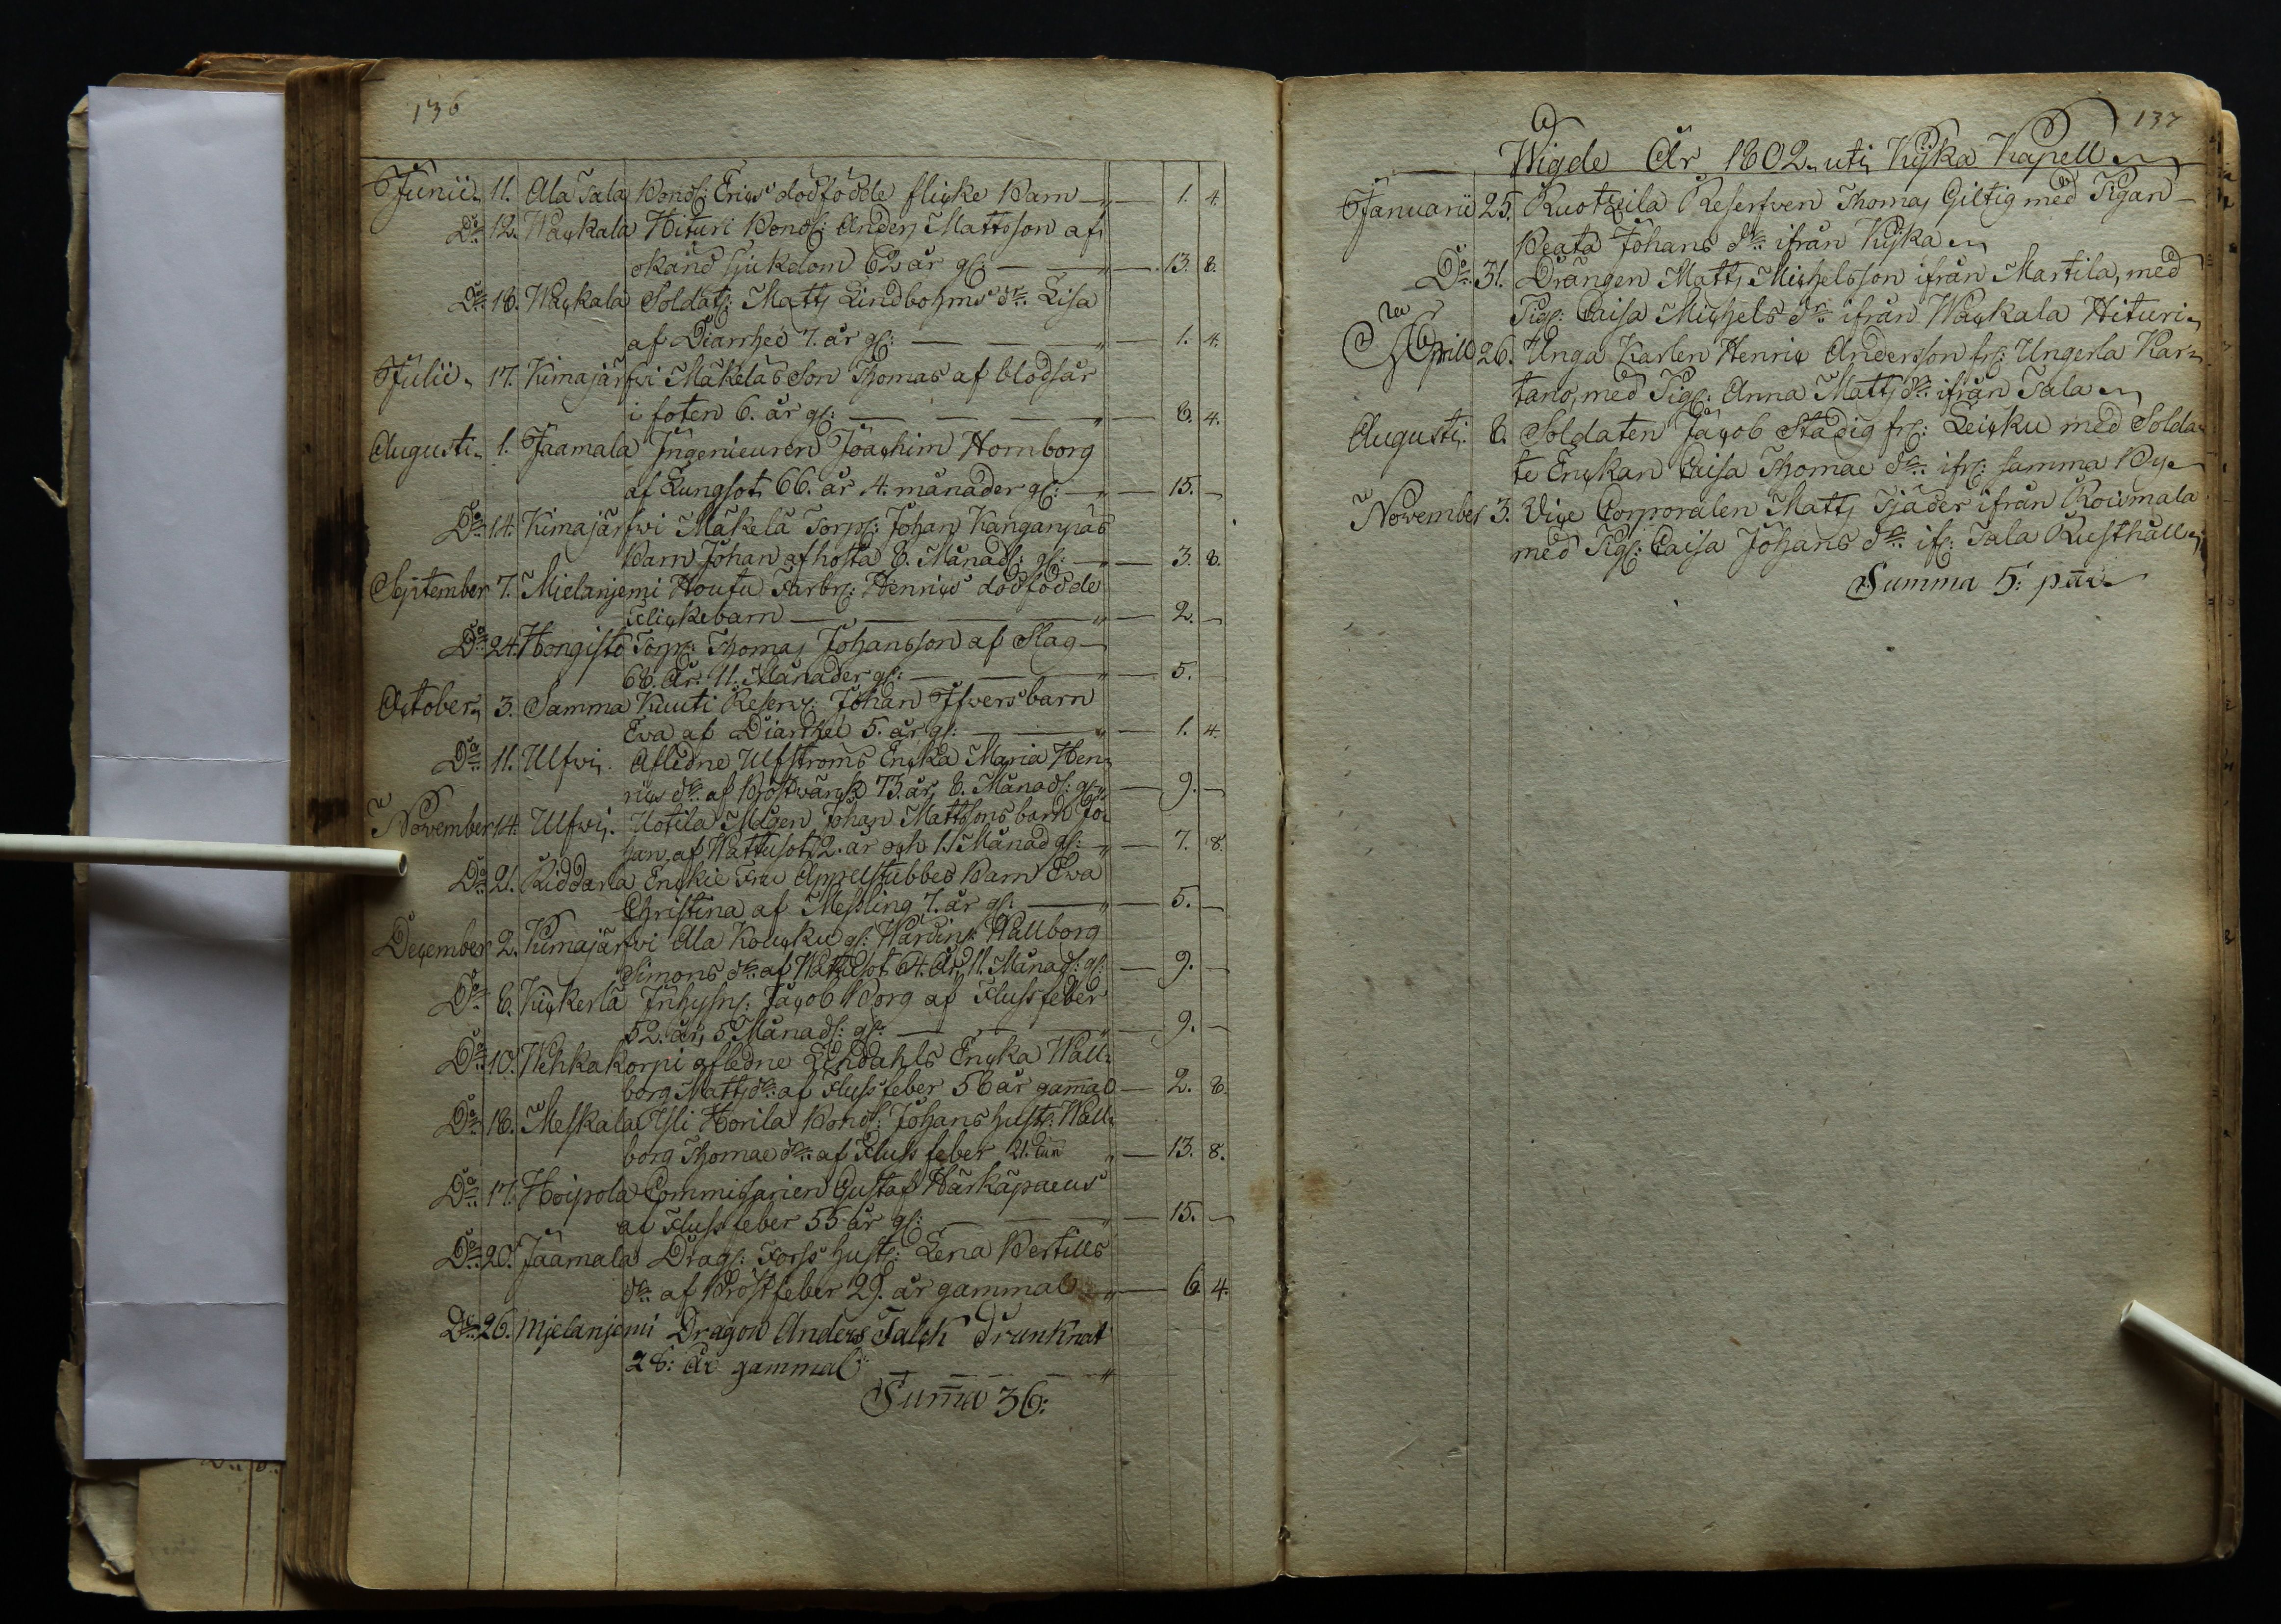 136
Junii 11. Ala Sala Bonds: Erics dödfödde flicke Barn — 1. 4.
Do 12. Wäckala Hituri Bonds: Anders Mattsson af
okänd sjukdom 62 år gl: — 13. 8.
Do 18. Wäckala Soldats: Matts Lindbohms dr. Lisa
af Diarrhée 7. år gl: — 1. 4.
Julii 17. Kimajärfwi Mäkeläs Son Thomas af blodsår
i foten 6. år gl: — 8. 4.
Augusti 1. Jaamala Ingenieuren Joachim Hornborg
af Lungsot 66. år 4. månader gl: — 15. —
Do 14. Kimajärfwi Mäkelä Torps: Johan Kanganpäs
Barn Johan af hosta 8. Månads: gl: — 3. 8.
September 7. Mielanjemi Houtu Farbr: Henrics dödfödde
Flickebarn — 2. —
Do 24. Hongisto Torp: Thomas Johansson af Slag
68. År 11. Månader gl: — 5.
October 3. Samma Kuuti Reserv: Johan Ifwers barn
Ewa af Diarrhée 5. år gl: — 1. 4.
Do 11. Ulfwi. Aflidne Ulfströms Encka Maria Hen
rics dr. af Bröstwärck 73. år, 8. Månads: gl: — 9. —
November 14. Ulfwi. Uotila Mågen Johan Mattssons barn Jo
han, af Wattusot 2. år och 1. Månad gl: — 7. 8.
Do 21. Riddarla Enckie Fru Appelstubbes Barn Ewa
Christina af Messling 7. år gl: — 5. —
December 2. Kimajärfwi Ala Koucku gl: Wärdin: Wallborg
Simons dr. af Wattusot 64. År, 11. Månads: gl: — 9. —
Do 6. Kickerlä Inhysn: Jacob Borg af Flussfeber
52. år, 5 Månads: gl: — 9. —
Do 10. Wehkakorpi aflidne Lindahls Encka Wall
borg Matts dr. af Flussfeber 56 år gammal — 2. 8.
Do 16. Meskala Yli Horila Bonds: Johans hustr: Wall
borg Thomae dr. af Fluss feber 21. — 13. 8.
Do 17. Hoipola Commissarien Gustaf Härkäpaeus
af Flussfeber 55 år gl: — 15. —
Do 20. Jaamala Drags: Forss hustr: Lena Bertills
dr. af Bröstfeber 29. år gammal — 6. 4.
Do 26. Mjelanjemi Dragon Anders Falck Drunknat
28: År gammal —
Summa 36:
137
Wigde År 1802. uti Kijka Kapell
Januarii 25. Ruotzila Reserfven Thomas Giltig med Pigan
Beata Johans dr. ifrån Kijka
Do 31. Drängen Matts Michelsson ifrån Martila, med
Pig: Caisa Michels dr. ifrån Wäckala Hituri
April 26. Unga Karlen Henric Andersson fr: Ungerla Kar
tano, med Pig: Anna Matts dr. ifrån Sala
Augusti. 8. Soldaten Jacob Stadig fr: Leicku med Solda
te Enckan Caisa Thomae dr. ifr: samma By
November 3. Vice Corporalen Matts Tjäder ifrån Roismala
med Pig: Caisa Johans dr. if: Sala Rusthåll
Summa 5: par